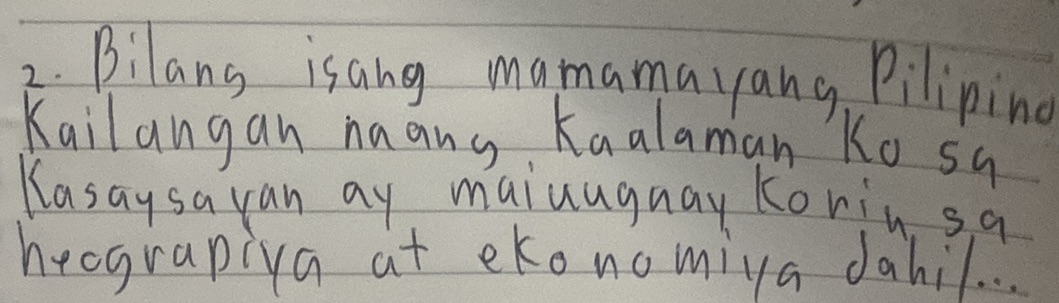 2. Bilang isang mamamayang Pilipino
Kailangan na ang kaalaman ko sa
Kasaysayan ay maiuugnay ko rin sa
heograpiya at ekonomiya dahil...